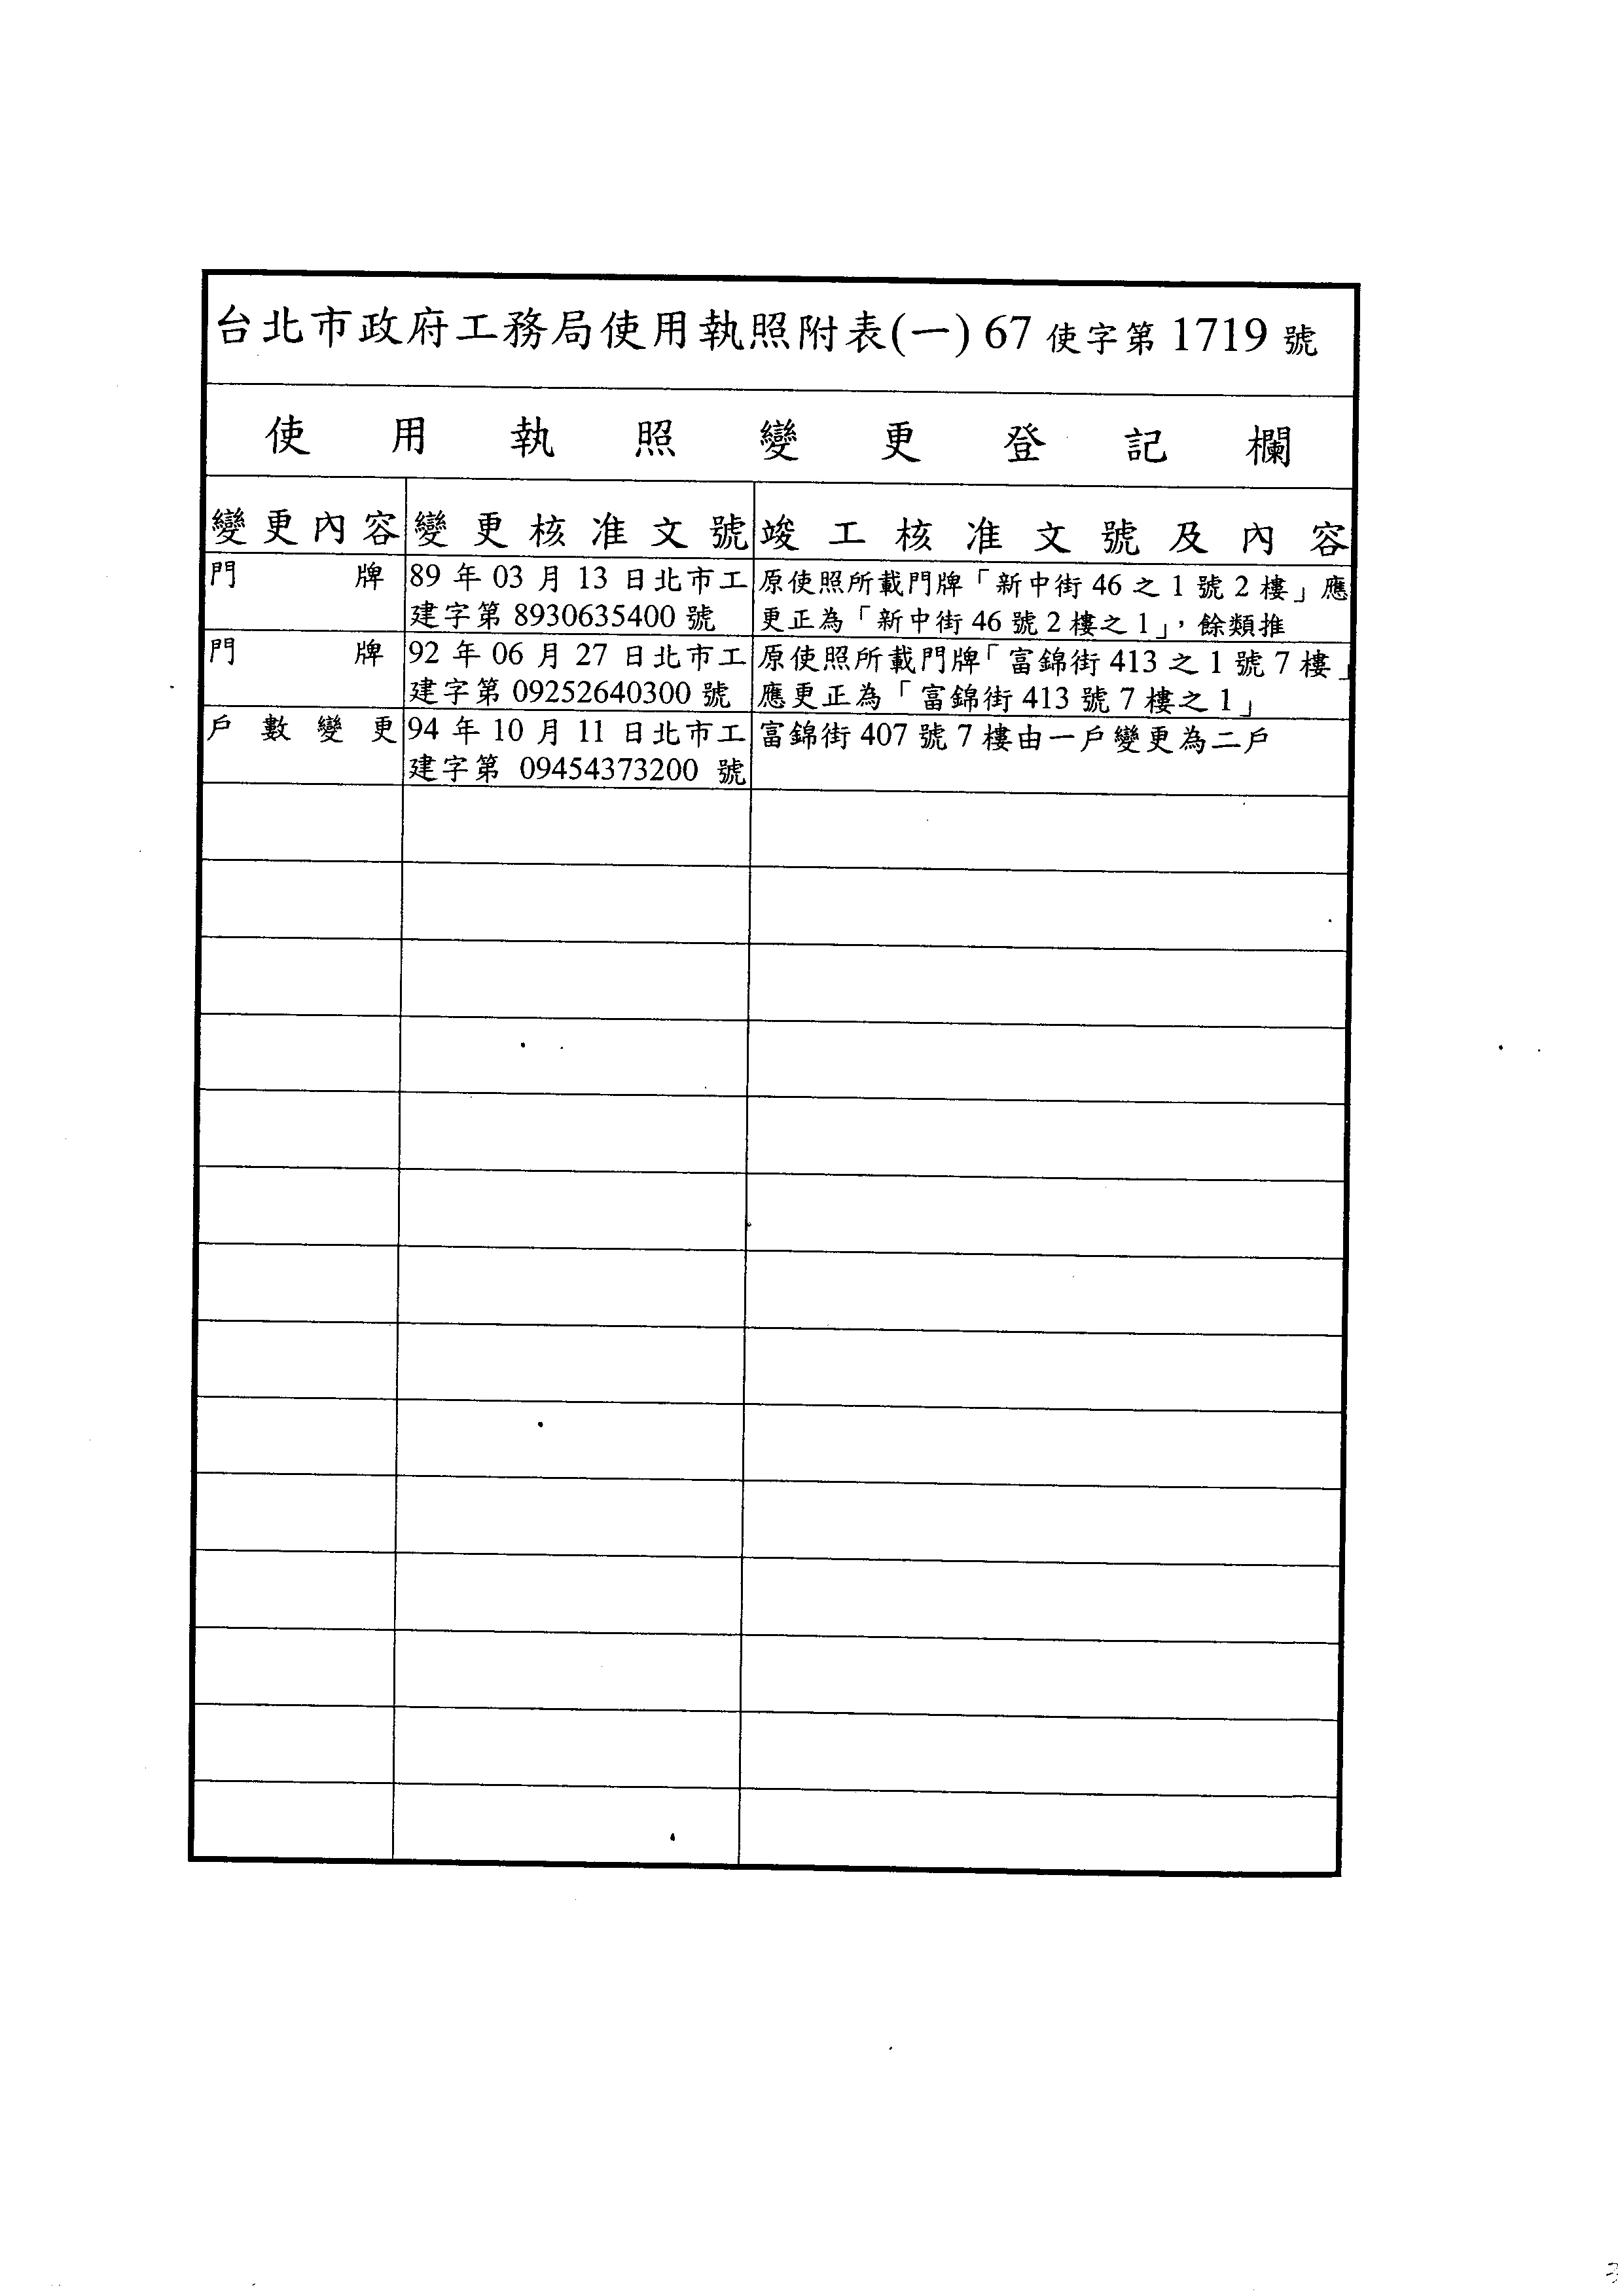 台北市政府工務局使用執照附表(一) 67 使字第 1719 號
使用執照變更登記欄
變更內容 變更核准文號 竣工核准文號及內容
門牌 89 年 03 月 13 日北市工 原使照所載門牌「新中街 46 之 1 號 2 樓」應
建字第 8930635400 號 更正為「新中街 46 號 2 樓之 1」，餘類推
門牌 92 年 06 月 27 日北市工 原使照所載門牌「富錦街 413 之 1 號 7 樓」
建字第 09252640300 號 應更正為「富錦街 413 號 7 樓之 1」
戶數變更 94 年 10 月 11 日北市工 富錦街 407 號 7 樓由一戶變更為二戶
建字第 09454373200 號